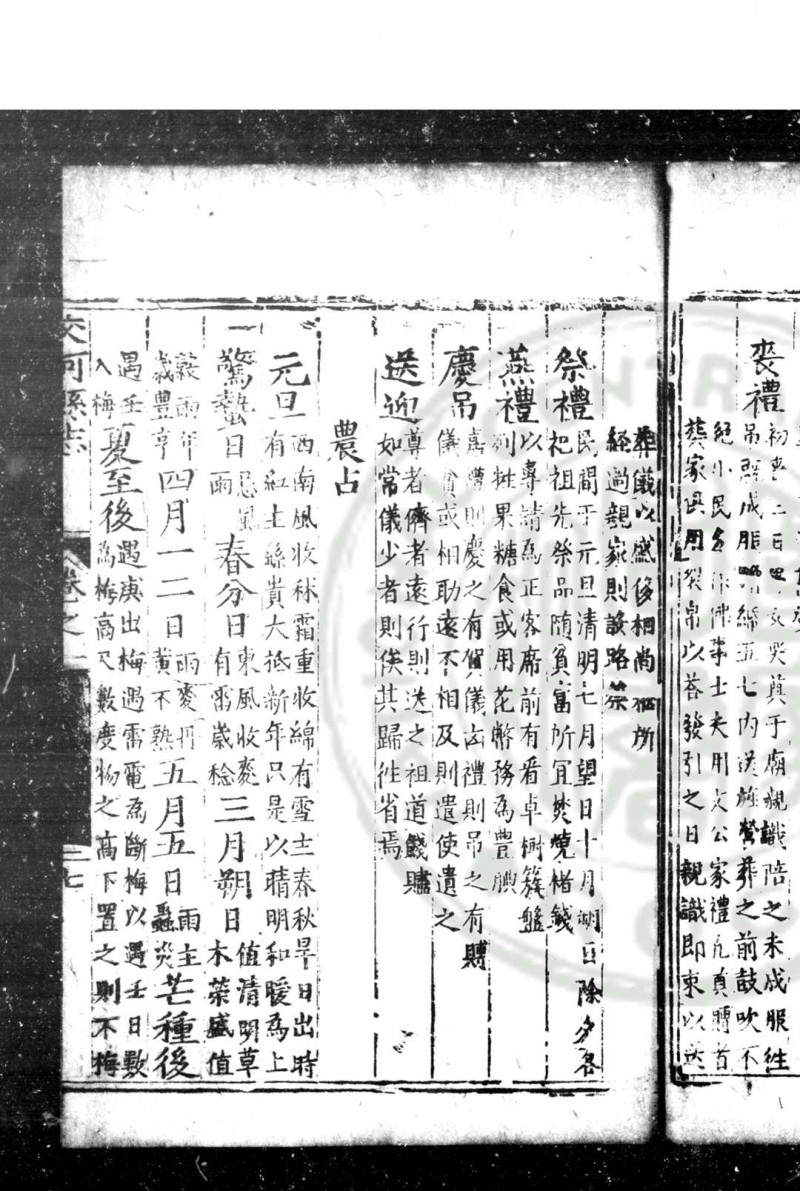 喪禮
初喪二日 哭奠于廟親識陪之未成服徃
吊 成服 五七內送 葬之前鼓吹不
絕小民多作佛事士夫用文公家禮凡真賻者
葬家俱用裂帛以荅發引之日親識即東以送
葬儀以盛侈相尚 所
經過親家則設路祭
祭禮
民間于元旦清明七月望日十月朔日除夕各
祀祖先祭品随貧富所宜焚燒楮錢
燕禮
以專請為正客席前有看卓樹簇盤
列牲果糖食或用花幣務為豐腆
慶吊
嘉禮則慶之有賀儀凶禮則吊之有賻
儀貧或相助遠不相及則遣使遺之
送迎
尊者儕者遠行則送之祖道餞贐
如常儀少者則俟其歸徃省焉
農占
元旦
西南風收秫霜重收綿有雪主春秋旱日出時
有紅主絲貴大抵新年只是以晴明和暖為上
驚蟄日
忌風
雨
春分日
東風收麥
有雷歲稔
三月朔日
值清明草
木榮盛值
穀雨年
歲豐亨
四月一二日
雨麥丹
黃不熟
五月五日
雨主
蠶災
芒種後
遇壬
入梅
夏至後
遇庚出梅遇雷電為斷梅以遇壬日數
為梅高尺數度物之高下置之則不梅
交河縣志
卷之
二七